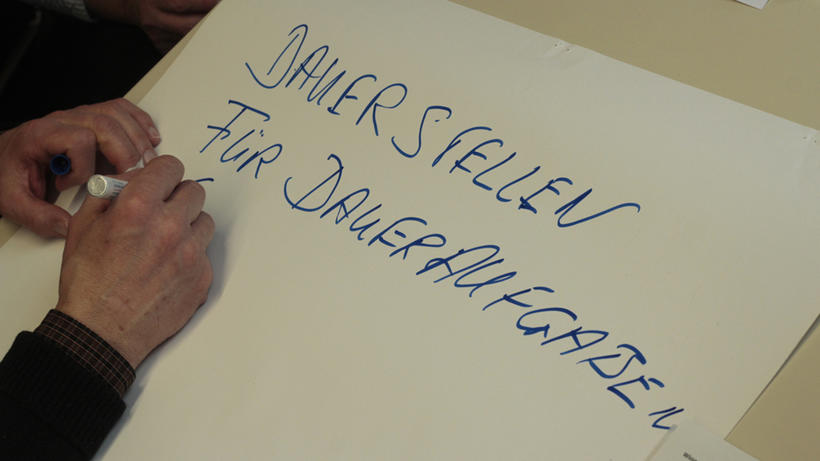 DAUERSTELLEN
FÜR DAUERAUFGABEN